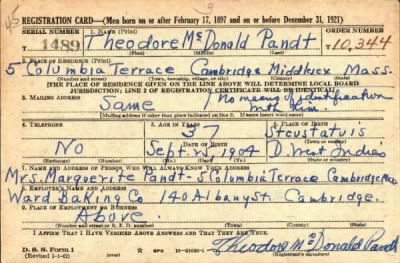 REGISTRATION CARD—(Men born on or after February 17, 1897 and on or before December 31, 1921)
SERIAL NUMBER 1. NAME (Print) ORDER NUMBER
T 1489 Theodore McDonald Pandt T10,344
(First) (Middle) (Last)
2. PLACE OF RESIDENCE (Print)
5 Columbia Terrace Cambridge Middlesex Mass.
(Number and street) (Town, township, village, or city) (County) (State)
[THE PLACE OF RESIDENCE GIVEN ON THE LINE ABOVE WILL DETERMINE LOCAL BOARD
JURISDICTION; LINE 2 OF REGISTRATION CERTIFICATE WILL BE IDENTICAL]
3. MAILING ADDRESS
Same No means of identification with him
[Mailing address if other than place indicated on line 2. If same insert word same]
4. TELEPHONE 5. AGE IN YEARS 6. PLACE OF BIRTH
37 Steustatuis
DATE OF BIRTH
No Sept. 25, 1904 D. West Indies
(Exchange) (Number) (Mo.) (Day) (Yr.) (State or country)
7. NAME AND ADDRESS OF PERSON WHO WILL ALWAYS KNOW YOUR ADDRESS
Mrs. Marguerite Pandt - 5 Columbia Terrace Cambridge
8. EMPLOYER'S NAME AND ADDRESS
Ward Baking Co 140 Albany St. Cambridge.
9. PLACE OF EMPLOYMENT OR BUSINESS
Above.
(Number and street or R. F. D. number) (Town) (County) (State)
I AFFIRM THAT I HAVE VERIFIED ABOVE ANSWERS AND THAT THEY ARE TRUE.
D. S. S. Form 1
(Revised 1-1-42) GPO Theodore McDonald Pandt